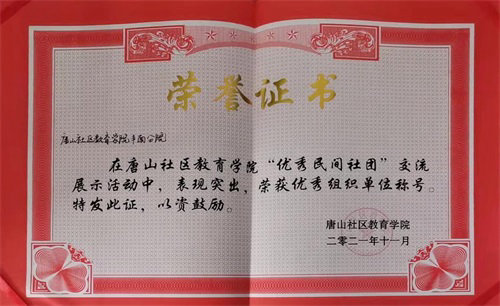 荣誉证书
唐山社区教育学院丰南分院
在唐山社区教育学院“优秀民间社团”交流
展示活动中，表现突出，荣获优秀组织单位称号。
特发此证，以资鼓励。
唐山社区教育学院
二零二一年十一月